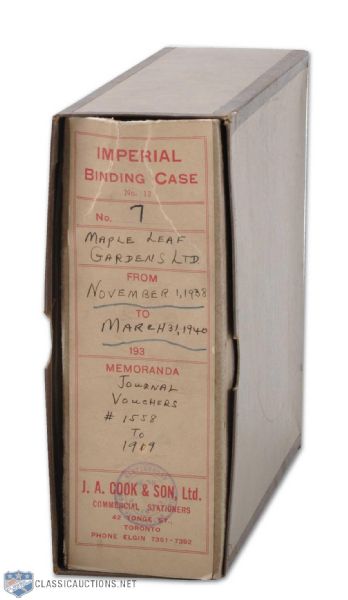 IMPERIAL
BINDING CASE
No. 12
No. 7
MAPLE LEAF
GARDENS LTD
FROM
NOVEMBER 1, 1938
TO
MARCH 31, 1940
193
MEMORANDA
JOURNAL
VOUCHERS
# 1558
To
1919
J. A. COOK & SON, Ltd.
COMMERCIAL STATIONERS
42 YONGE ST.,
TORONTO
PHONE ELGIN 7351-7392
CLASSICAUCTIONS.NET